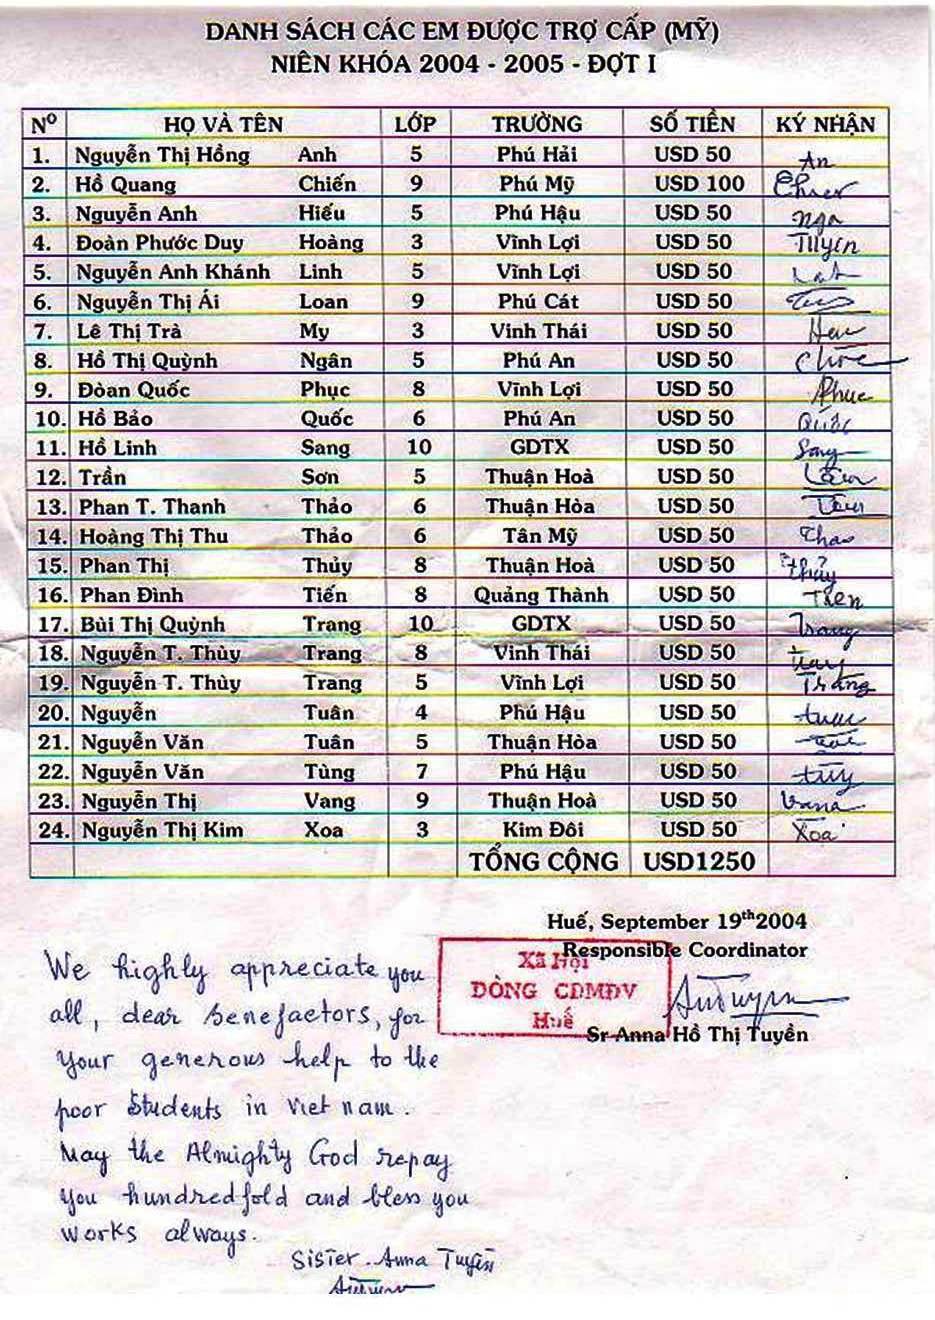 DANH SÁCH CÁC EM ĐƯỢC TRỢ CẤP (MỸ)
NIÊN KHÓA 2004 - 2005 - ĐỢT I
Nº HỌ VÀ TÊN LỚP TRƯỜNG SỐ TIỀN KÝ NHẬN
1. Nguyễn Thị Hồng Anh 5 Phú Hải USD 50 An
2. Hồ Quang Chiến 9 Phú Mỹ USD 100
3. Nguyễn Anh Hiếu 5 Phú Hậu USD 50 Nga
4. Đoàn Phước Duy Hoàng 3 Vĩnh Lợi USD 50 Tuyền
5. Nguyễn Anh Khánh Linh 5 Vĩnh Lợi USD 50
6. Nguyễn Thị Ái Loan 9 Phú Cát USD 50
7. Lê Thị Trà My 3 Vinh Thái USD 50
8. Hồ Thị Quỳnh Ngân 5 Phú An USD 50
9. Đòan Quốc Phục 8 Vĩnh Lợi USD 50 Phuc
10. Hồ Bảo Quốc 6 Phú An USD 50 Quốc
11. Hồ Linh Sang 10 GDTX USD 50 Sang
12. Trần Sơn 5 Thuận Hoà USD 50
13. Phan T. Thanh Thảo 6 Thuận Hòa USD 50
14. Hoàng Thị Thu Thảo 6 Tân Mỹ USD 50 Thao
15. Phan Thị Thủy 8 Thuận Hoà USD 50 Thủy
16. Phan Đình Tiến 8 Quảng Thành USD 50
17. Bùi Thị Quỳnh Trang 10 GDTX USD 50 Trang
18. Nguyễn T. Thùy Trang 8 Vinh Thái USD 50
19. Nguyễn T. Thùy Trang 5 Vĩnh Lợi USD 50 Trang
20. Nguyễn Tuân 4 Phú Hậu USD 50
21. Nguyễn Văn Tuân 5 Thuận Hòa USD 50
22. Nguyễn Văn Tùng 7 Phú Hậu USD 50
23. Nguyễn Thị Vang 9 Thuận Hoà USD 50
24. Nguyễn Thị Kim Xoa 3 Kim Đôi USD 50 Xoa
TỔNG CỘNG USD1250
Huế, September 19th2004
Responsible Coordinator
Xã Hội
DÒNG CDMĐV
Huế
Sr Anna Hồ Thị Tuyền
We highly appreciate you
all, dear benefactors, for
your generous help to the
poor students in Viet nam.
May the Almighty God repay
you hundredfold and bless you
works always.
Sister Anna Tuyền